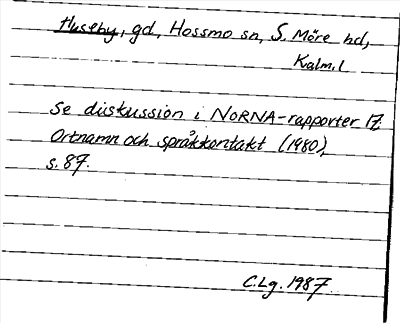 Huseby, gd, Hossmo sn, S. Möre hd,
Kalm. l
Se diskussion i NORNA-rapporter 17,
Ortnamn och språkkontakt (1980),
s. 87.
C.Lg. 1987.